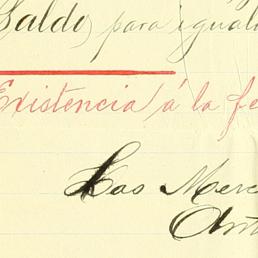 Saldo para iguala
Existencia á la fe
Las Merc
Ant